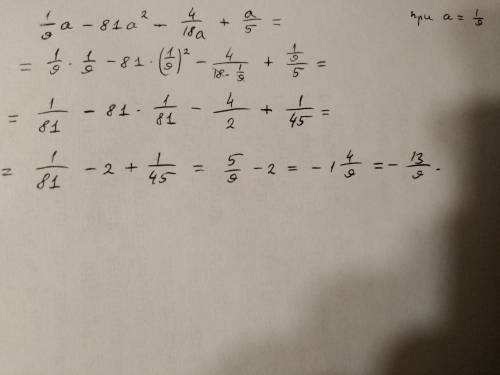 1/9 a - 81a² - 4/18a + a/5 = при a = 1/9
= 1/9 · 1/9 - 81 · (1/9)² - 4/(18 · 1/9) + (1/9)/5 =
= 1/81 - 81 · 1/81 - 4/2 + 1/45 =
= 1/81 - 2 + 1/45 = 5/9 - 2 = -1 4/9 = - 13/9 .